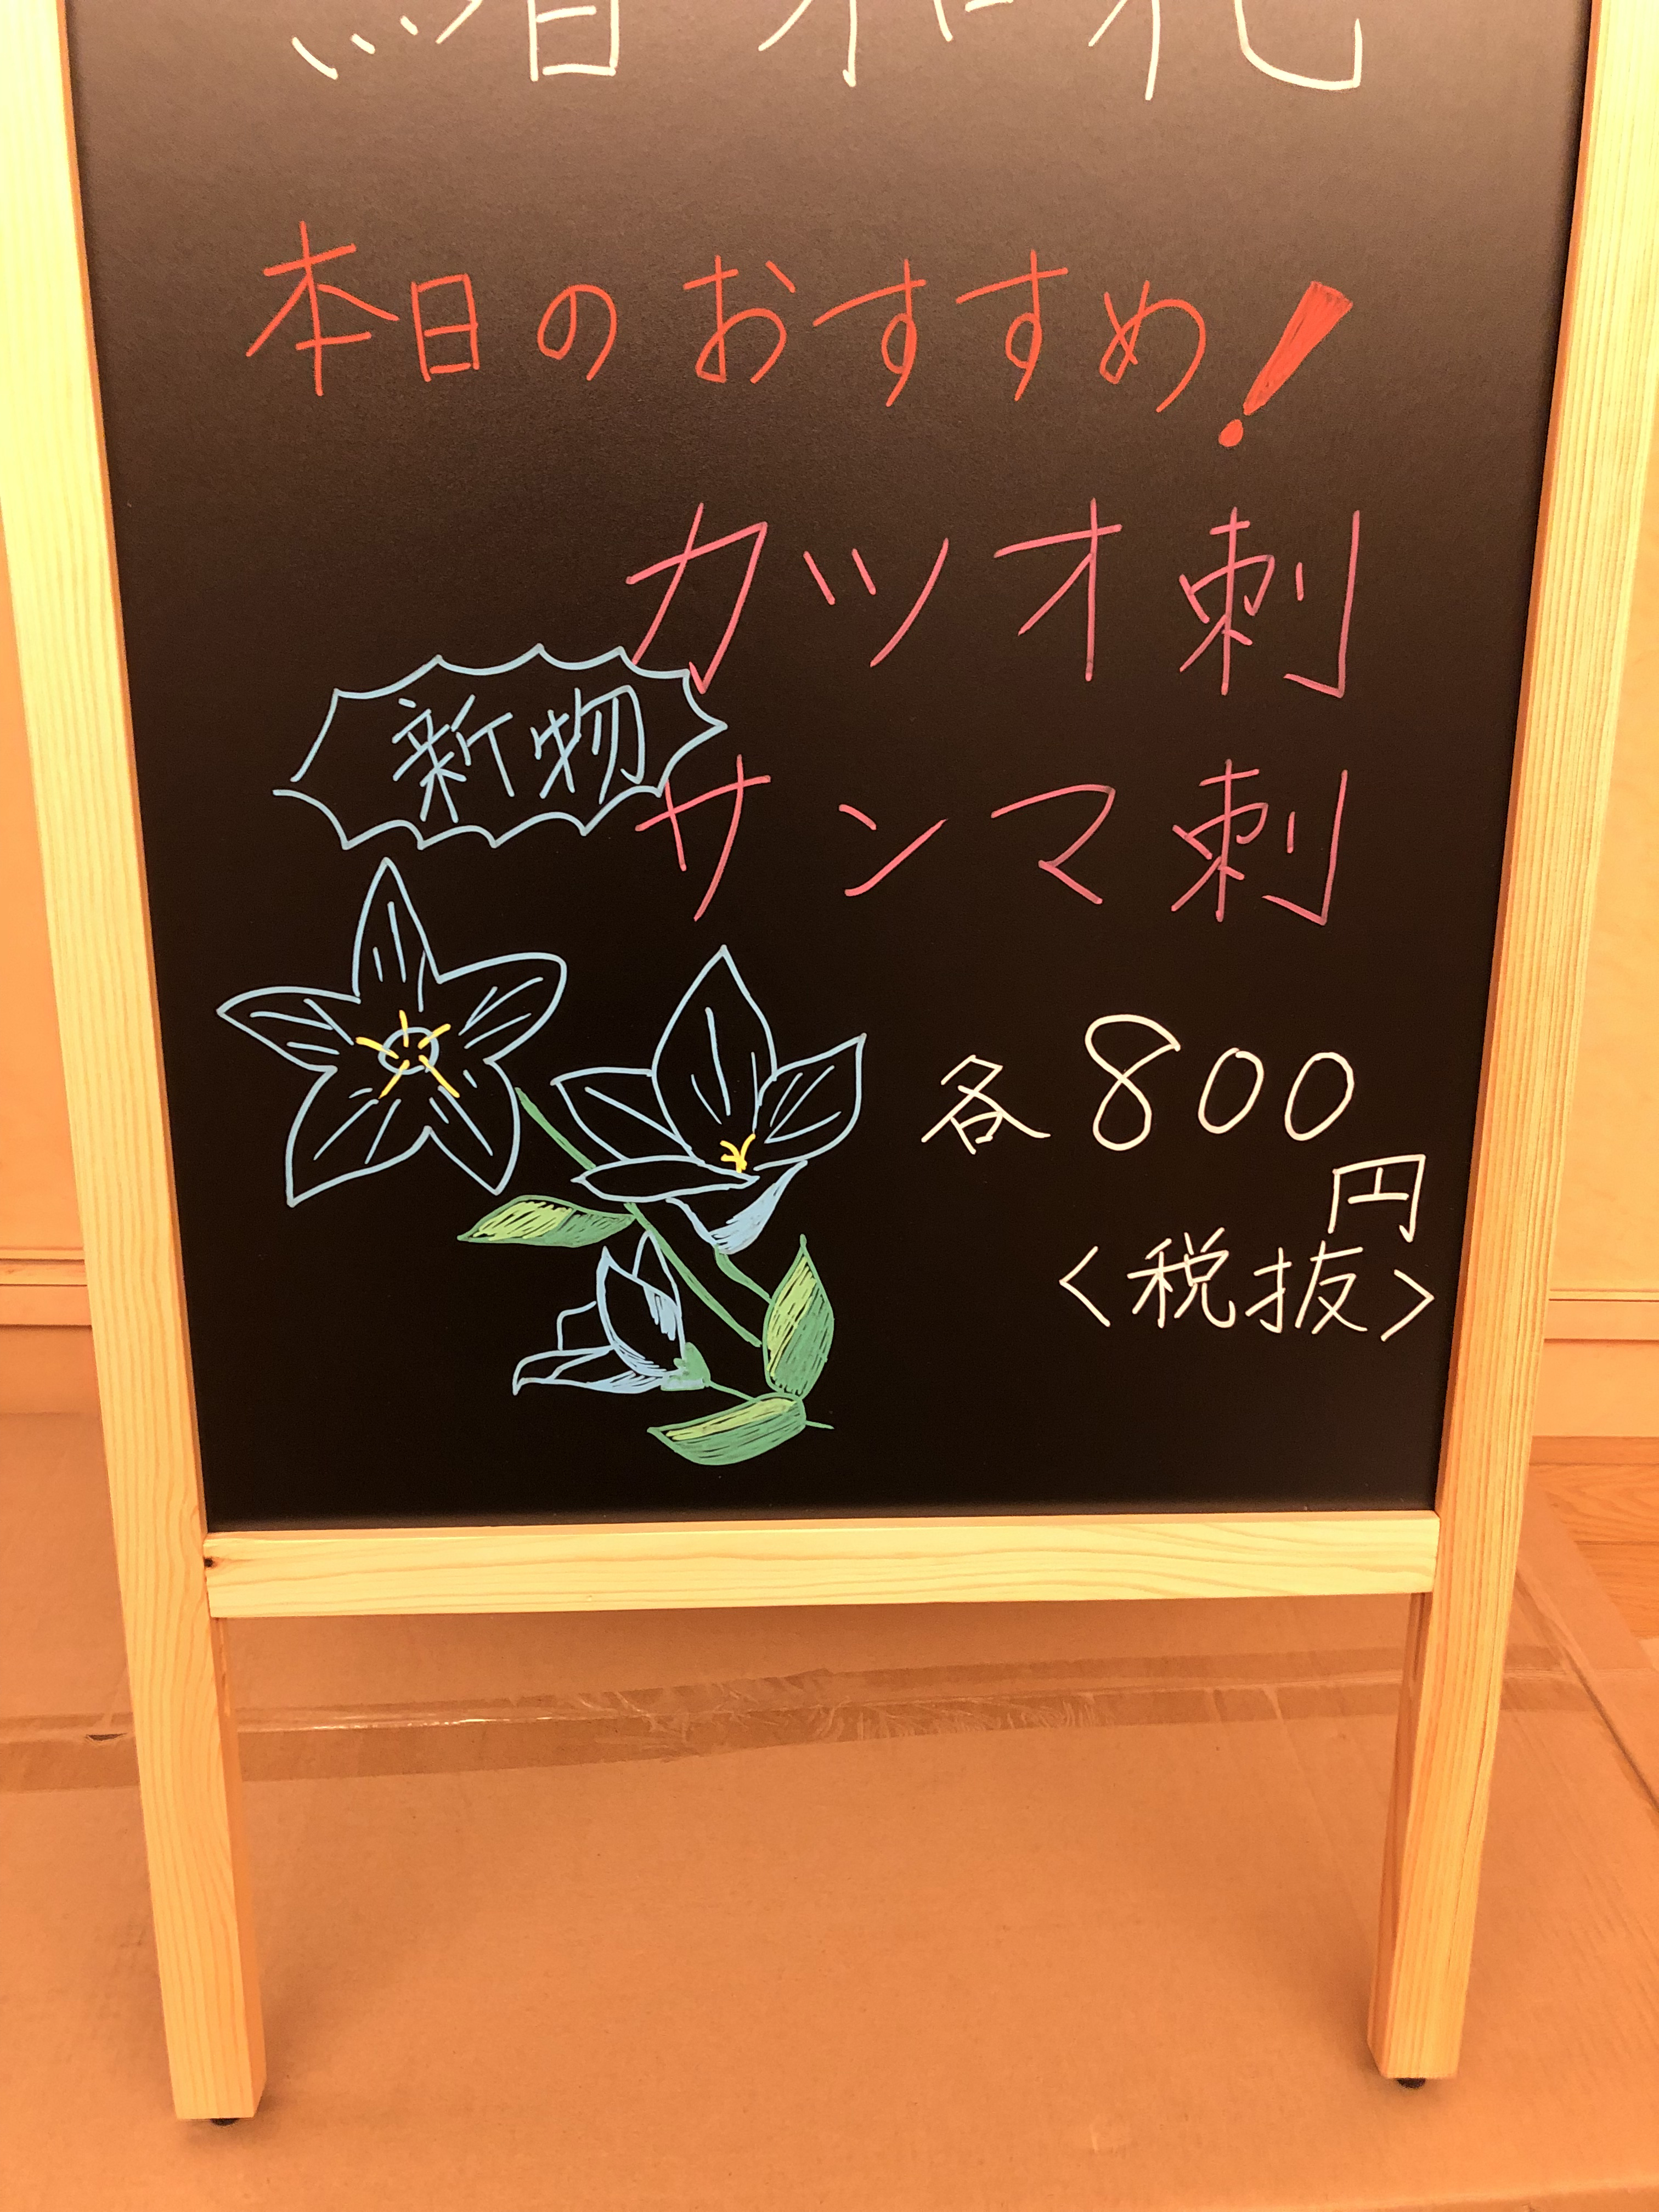 本日のおすすめ!
カツオ刺
新物
サンマ刺
各800
円
<税抜>